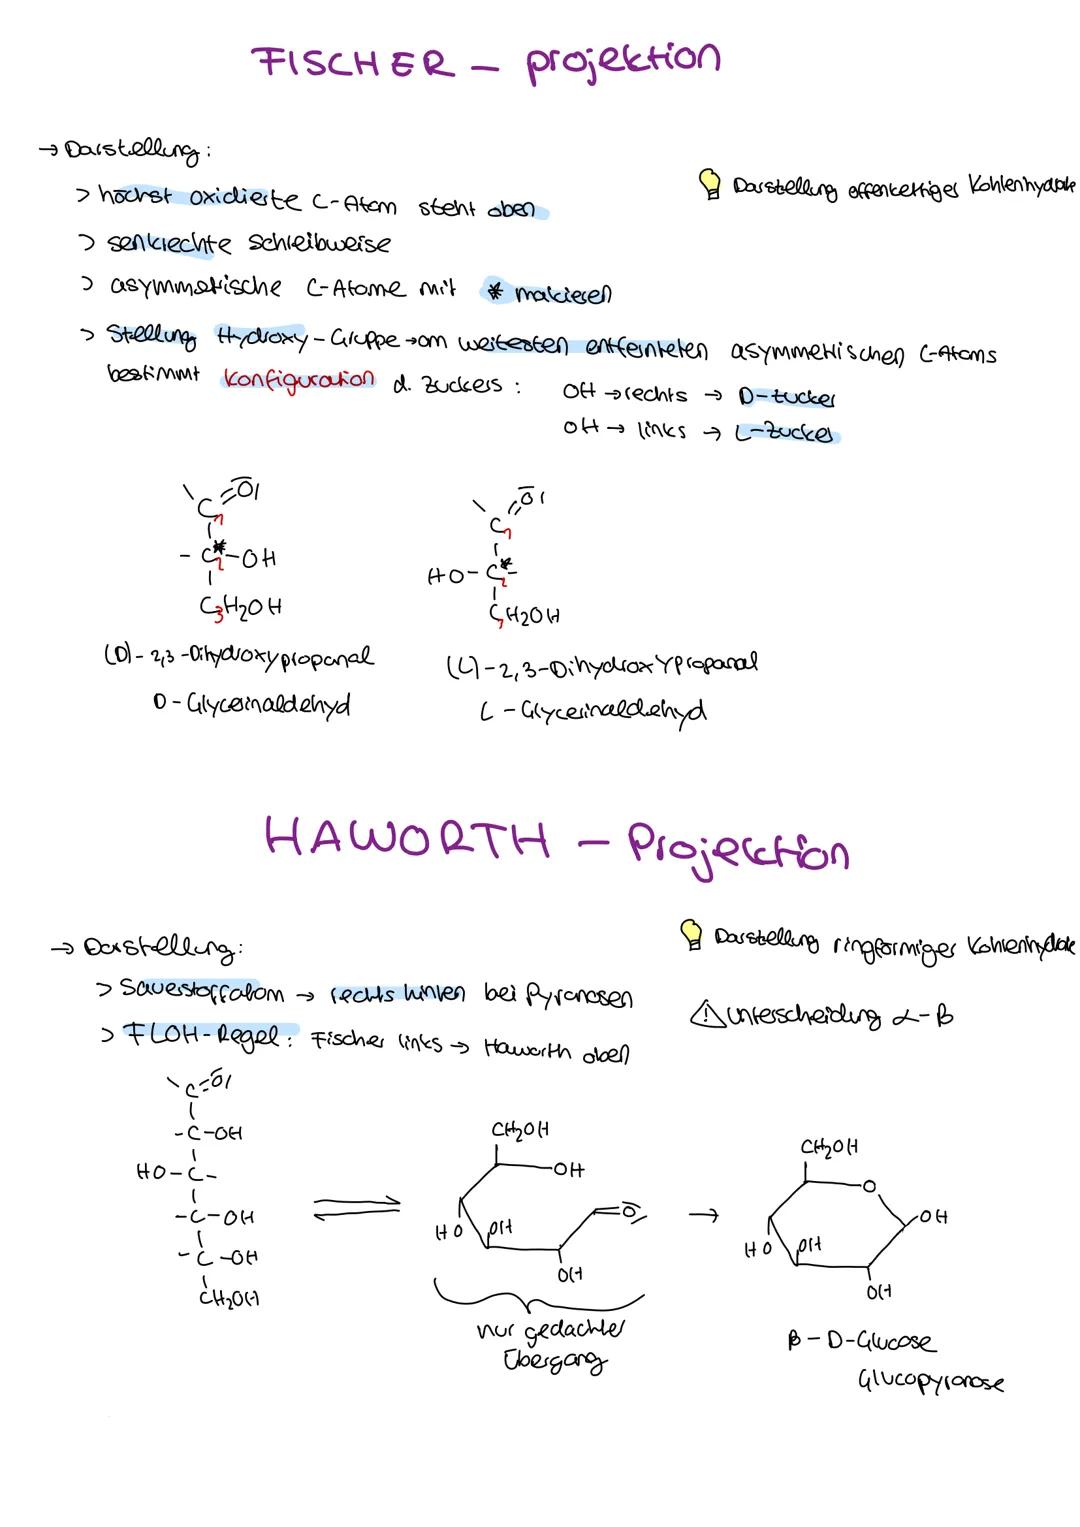 FISCHER – projektion
→ Darstellung:
> höchst oxidierte C-Atom steht oben
Darstellung offenkettiger Kohlenhydrate
> senkrechte Schreibweise
> asymmetrische C-Atome mit * makieren
> Stellung Hydroxy-Gruppe → am weitesten entfernteten asymmetrischen C-Atoms
bestimmt Konfiguration d. Zuckers:
OH → rechts → D-Zucker
OH → links → L-Zucker
C=O
1
C*-OH
2
C3H2OH
C=O
1
HO-C*-
2
CH2OH
3
(D)-2,3-Dihydroxypropanal
D-Glycerinaldehyd
(L)-2,3-Dihydroxypropanal
L-Glycerinaldehyd
HAWORTH – Projektion
→ Darstellung:
Darstellung ringförmiger Kohlenhydrate
> Sauerstoffatom → rechts hinten bei Pyranosen
! Unterscheidung α-β
> FLOH-Regel: Fischer links → Haworth oben
C=O
-C-OH
HO-C-
-C-OH
-C-OH
CH2OH
CH2OH
OH
HO
OH
O
OH
nur gedachter
Übergang
→
CH2OH
O
OH
HO
OH
OH
β-D-Glucose
Glucopyranose